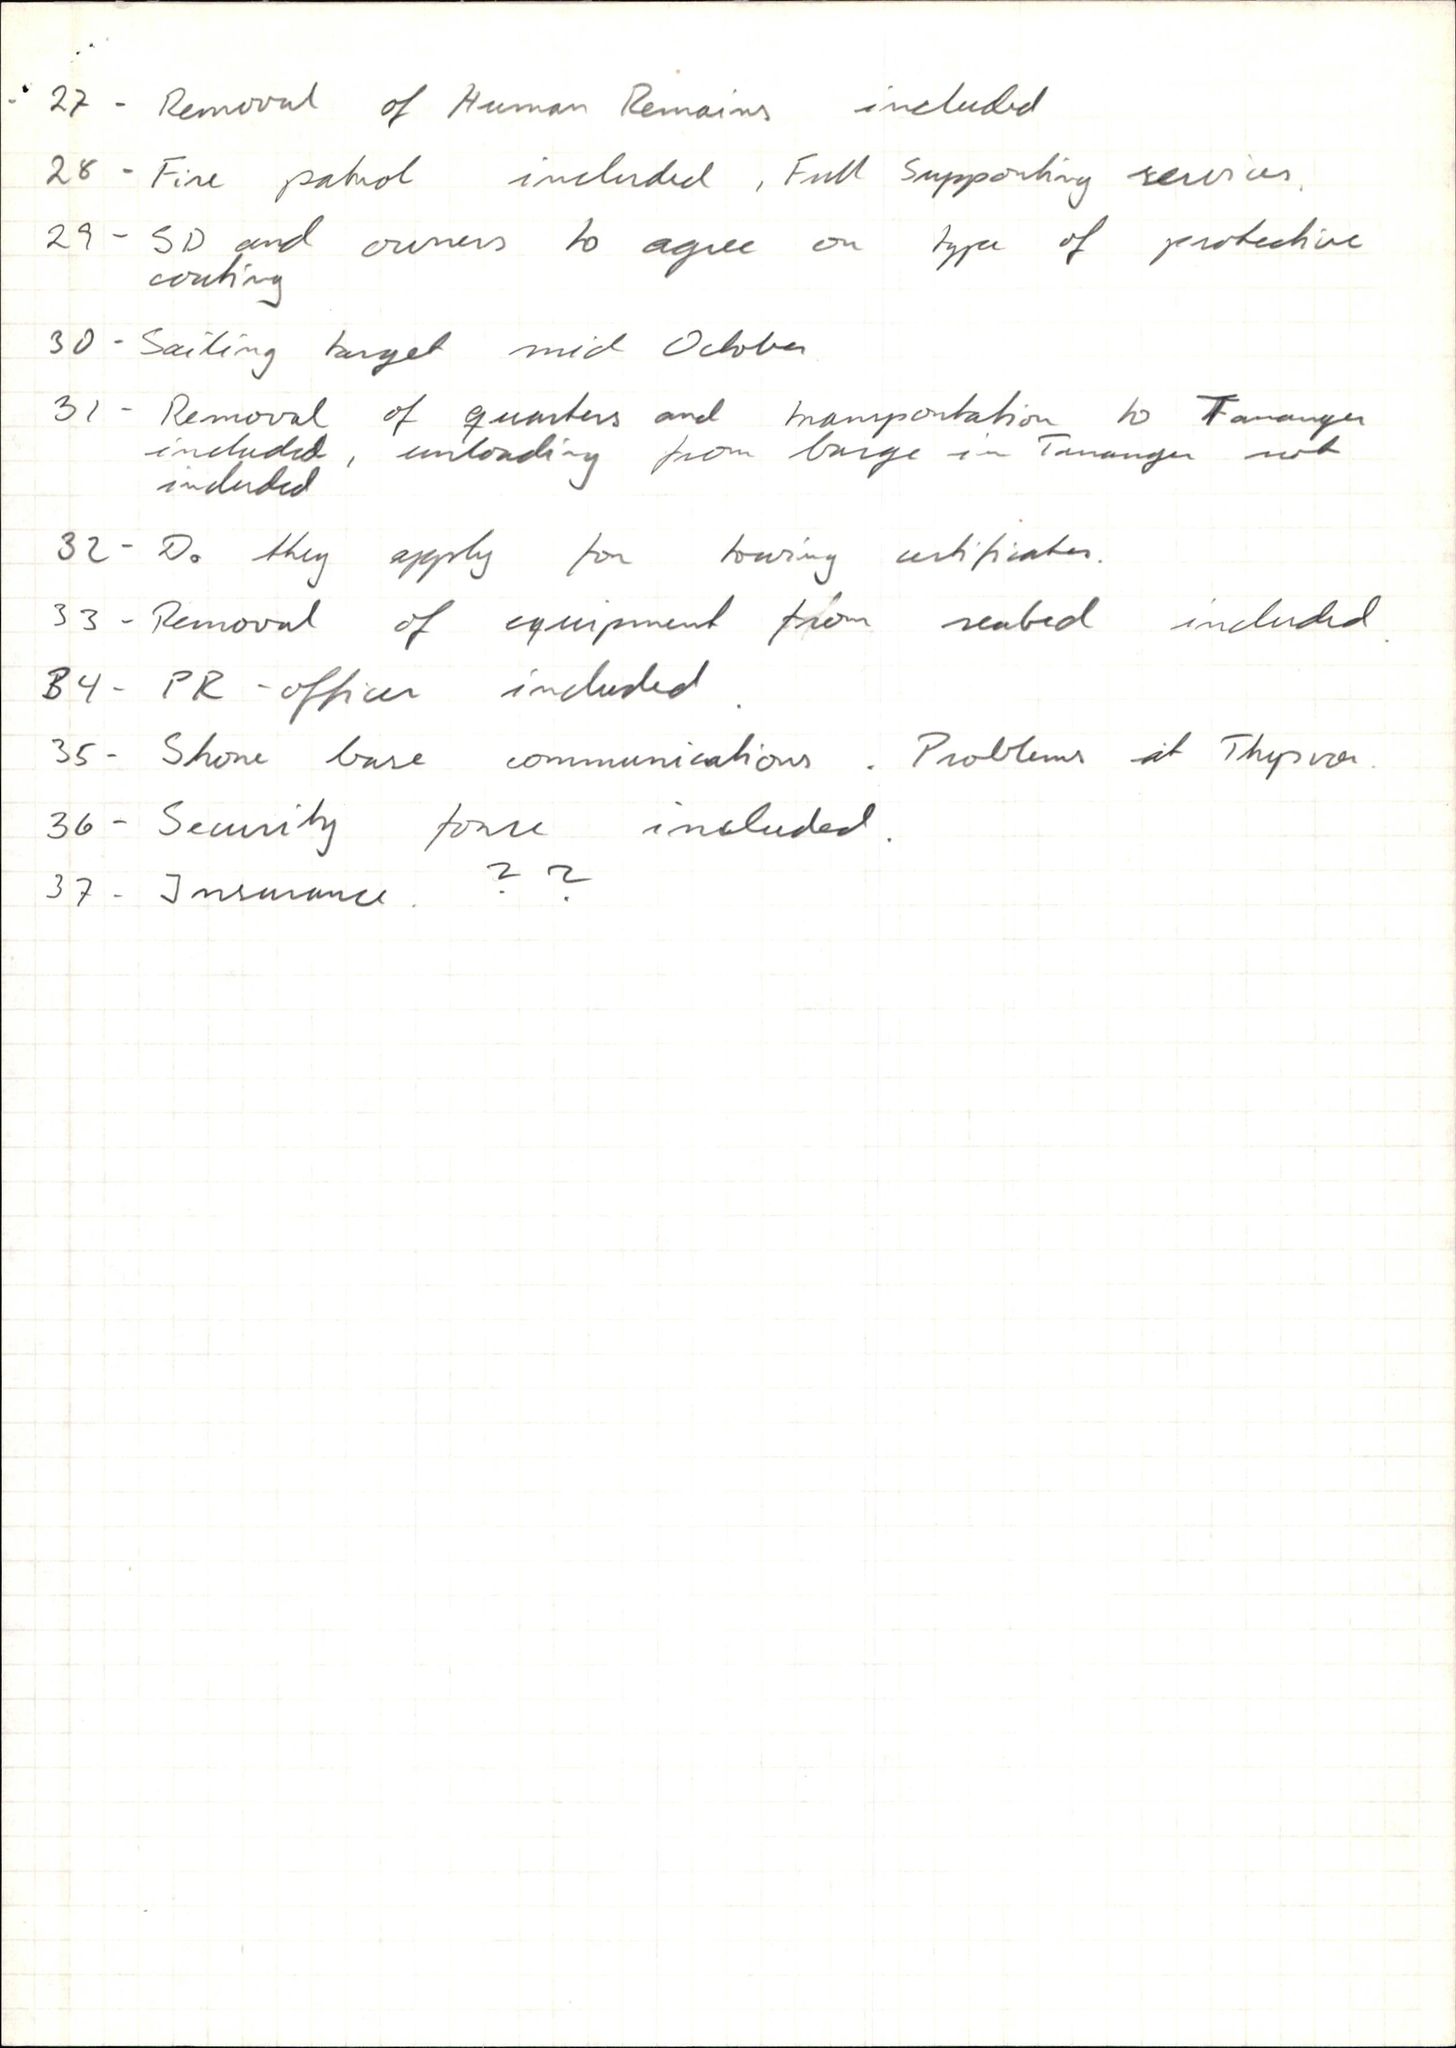 27 - Removal of Human Remains included
28 - Fire patrol included, Full Supporting services.
29 - SD and owners to agree on type of protective
coating
30 - Sailing target mid October
31 - Removal of quarters and transportation to Tananger
included, unloading from barge in Tananger not
included
32 - Do they apply for towing certificates.
33 - Removal of equipment from seabed included.
34 - PR-officer included.
35 - Shore base communications. Problems at
36 - Security force included.
37 - Insurance. ??